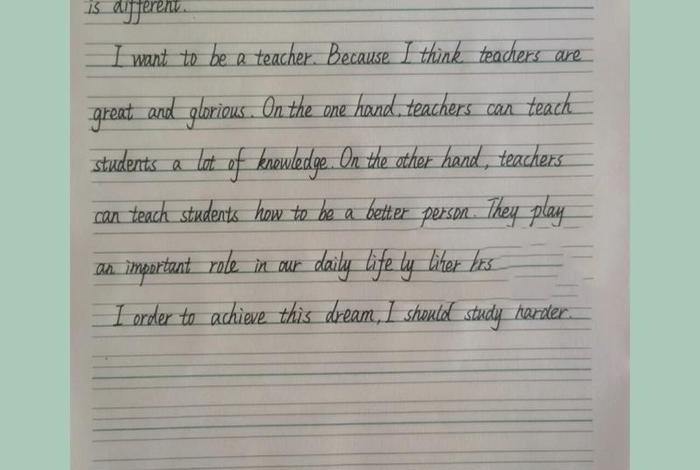 is different.
I want to be a teacher. Because I think teachers are
great and glorious. On the one hand, teachers can teach
students a lot of knowledge. On the other hand, teachers
can teach students how to be a better person. They play
an important role in our daily life
I order to achieve this dream, I should study harder.